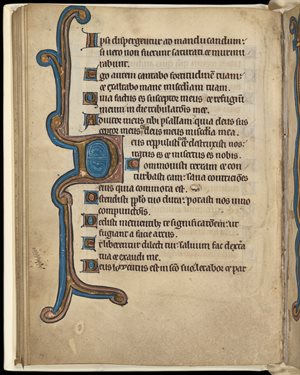 Ipsi dispergentur ad manducandum:
si vero non fuerint saturati et murmu
rabunt.
Ego autem cantabo fortitudinem tuam:
et exaltabo mane misericordiam tuam.
Quia factus es susceptor meus et refugium
meum in die tribulationis mee.
Adiutor meus tibi psallam quia deus sus
ceptor meus deus meus misericordia mea.
Deus reppulisti nos et destruxisti nos:
iratus es et misertus es nobis.
Commovisti terram et con
turbasti eam: sana contritiones
eius quia commota est.
Ostendisti populo tuo dura: potasti nos vino
compunctionis.
Dedisti metuentibus te significationem: ut
fugiant a facie arcus.
Et liberentur dilecti tui: salvum fac dextera
tua et exaudi me.
Deus locutus est in sancto suo letabor et par